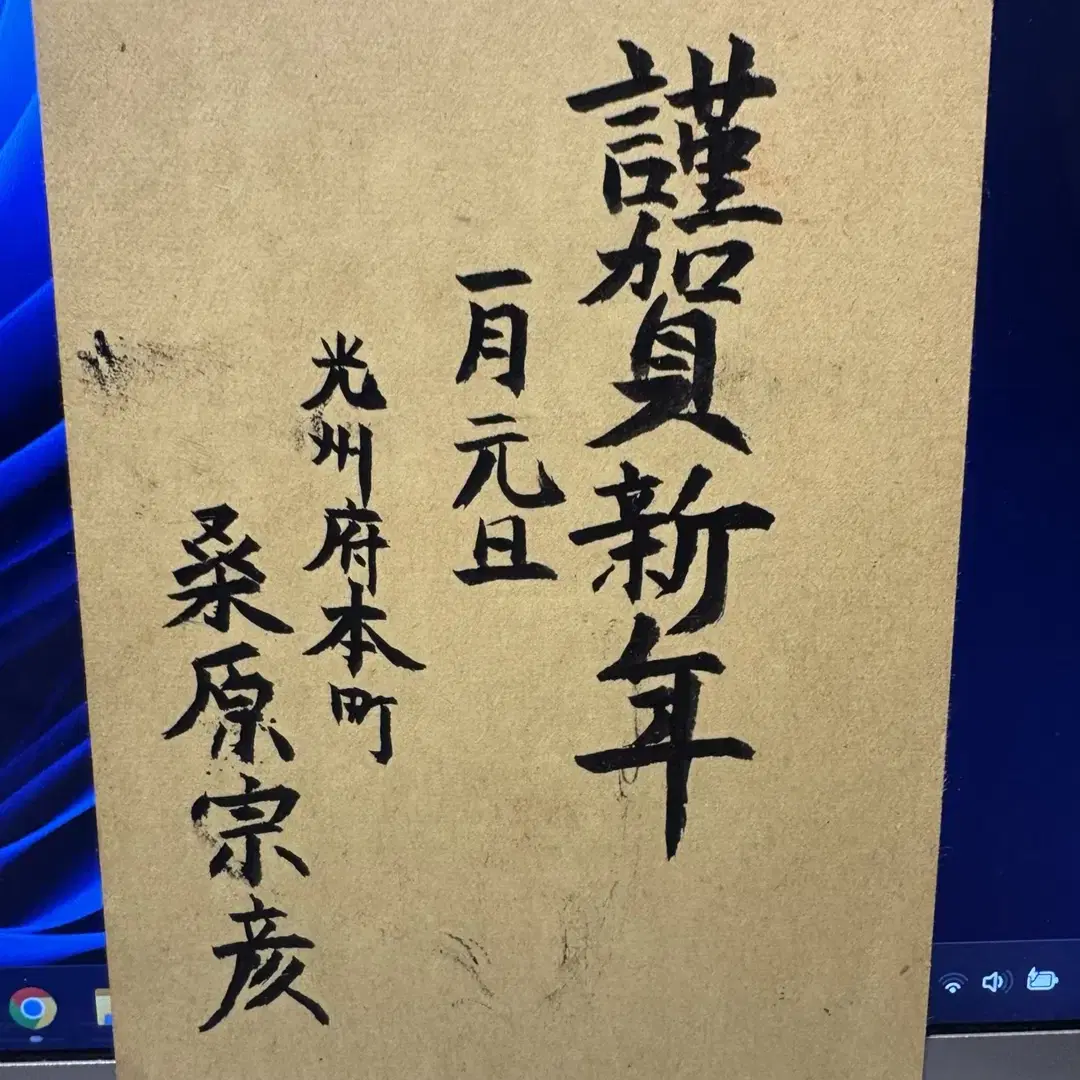 謹賀新年
一月元旦
光州府本町
桑原宗彦